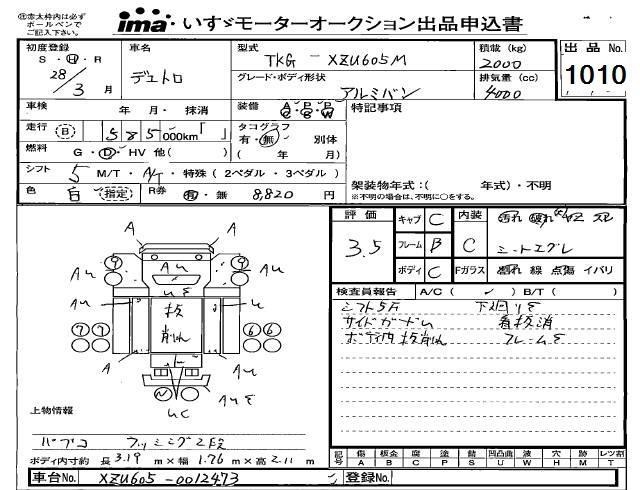 ㊟赤太枠内は必ず
ボールペンで
ご記入下さい。
ima いすゞモーターオークション出品申込書
初度登録
S・H・R
28/3月
車名
デュトロ
型式
TKG － XZU605M
グレード・ボディ形状
アルミバン
積載(kg)
2000
排気量(cc)
4000
出品No.
1010
車検 年 月・ 抹消
装備 A/C P/S P/W
特記事項
走行 (B) 585,000km「 」
タコグラフ
有・無 別体
( 年 月)
燃料 G・D・HV 他( )
シフト 5 M/T・A/T・特殊(2ペダル・3ペダル)
架装物年式:( 年式)・不明
※不明の場合は、不明に○をする。
色 白 (指定) R券 有・無 8,820円
評価
3.5
キャブ C
フレーム B
ボディ C
内装
C
Fガラス
汚れ 破れ
シートエグレ
線 点傷 イバリ
検査員報告 A/C( ✓ ) B/T( )
シフト5F
サイドガード
看板消
A
A
9 9
Au Au Au
uE
板
削れ
u
7 7 6 6
A Au
N
uC
AuE
上物情報
パブコ
ボディ内寸約 長3.19m×幅1.76m×高2.11m
記号 傷A 板金B 腐C 塗P 錆S 凹凸曲U 波W 穴H 跡M レンズ割T
車台No. XZU605-0012473
登録No.